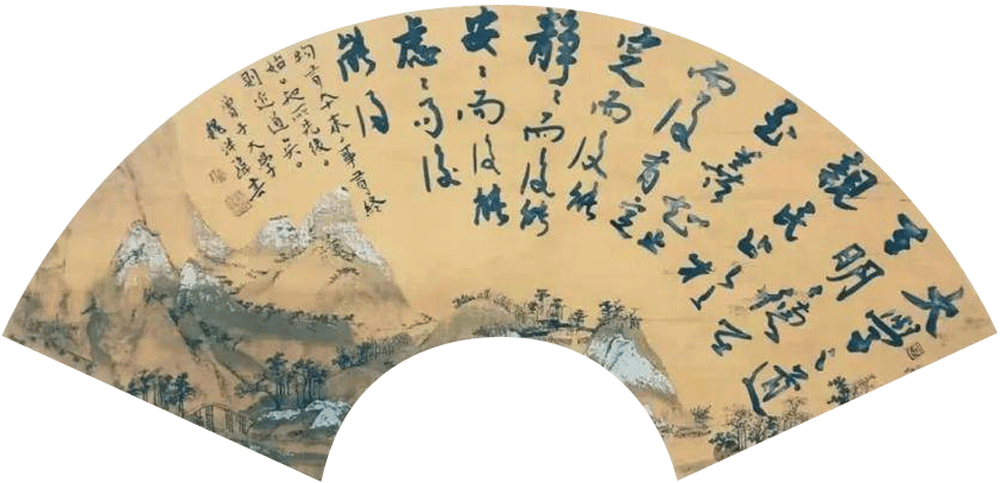 大學之道
在明明德在
親民在止於
至善知止
而後有定
定而後能
靜々而後能
安々而後能
慮々而後
能得
物有本末事有終
始知所先後
則近道矣
曾子大學